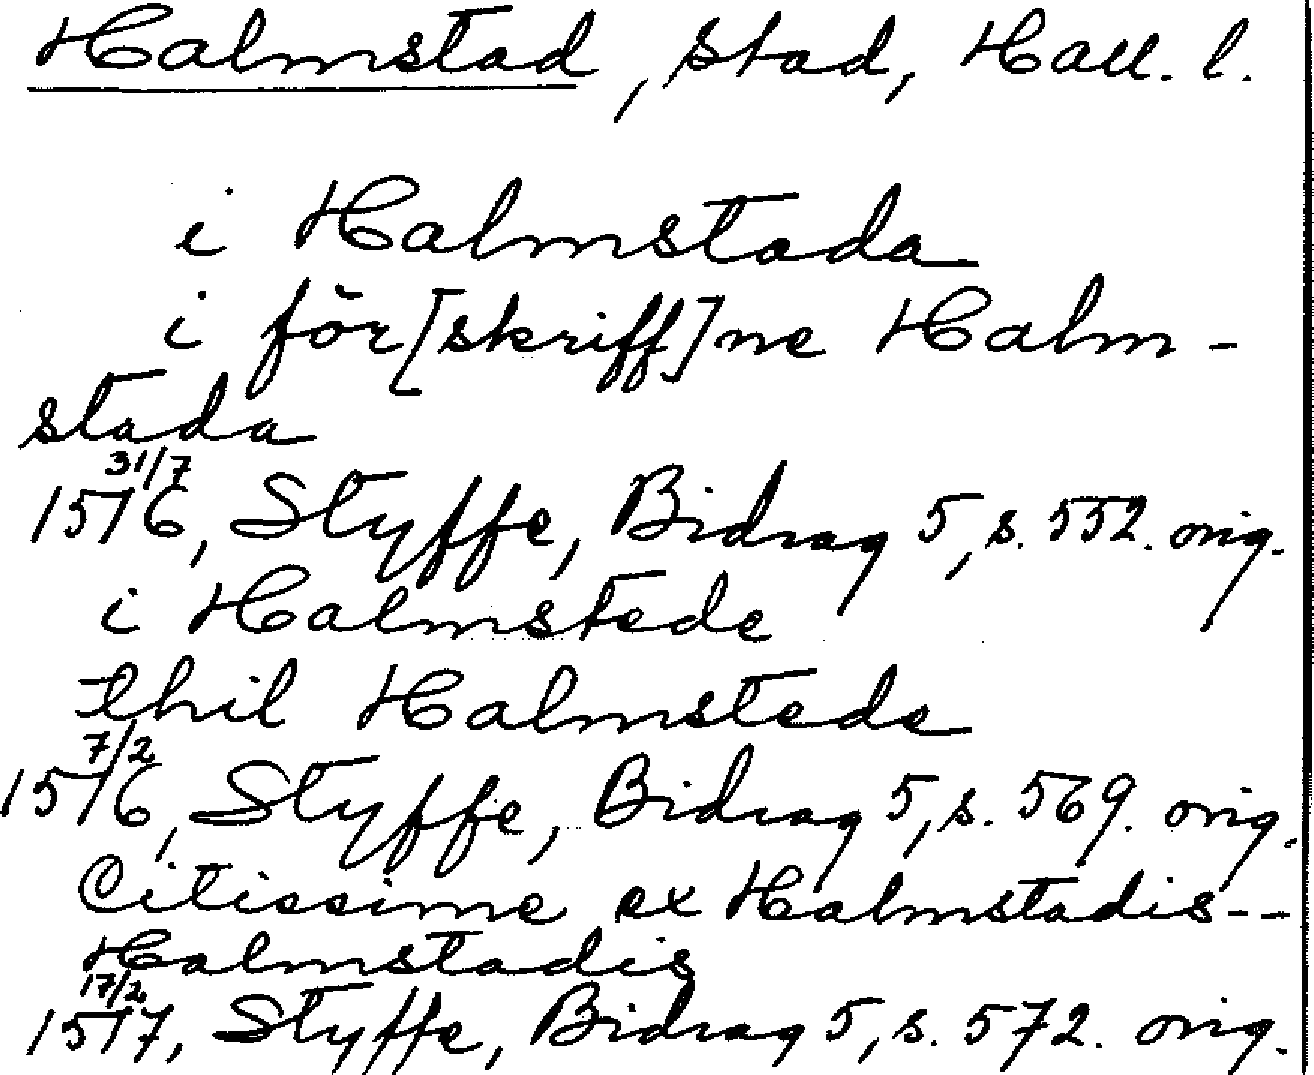 Halmstad, stad, Hall. l.
i Halmstada
i för[skriff]ne Halm-
stada
31/7
1516, Styffe, Bidrag 5, s. 552. orig.
i Halmstede
thil Halmstede
7/2
1516, Styffe, Bidrag 5, s. 569. orig.
Citissime ex Halmstadis--
Halmstadis
17/2
1517, Styffe, Bidrag 5, s. 572. orig.